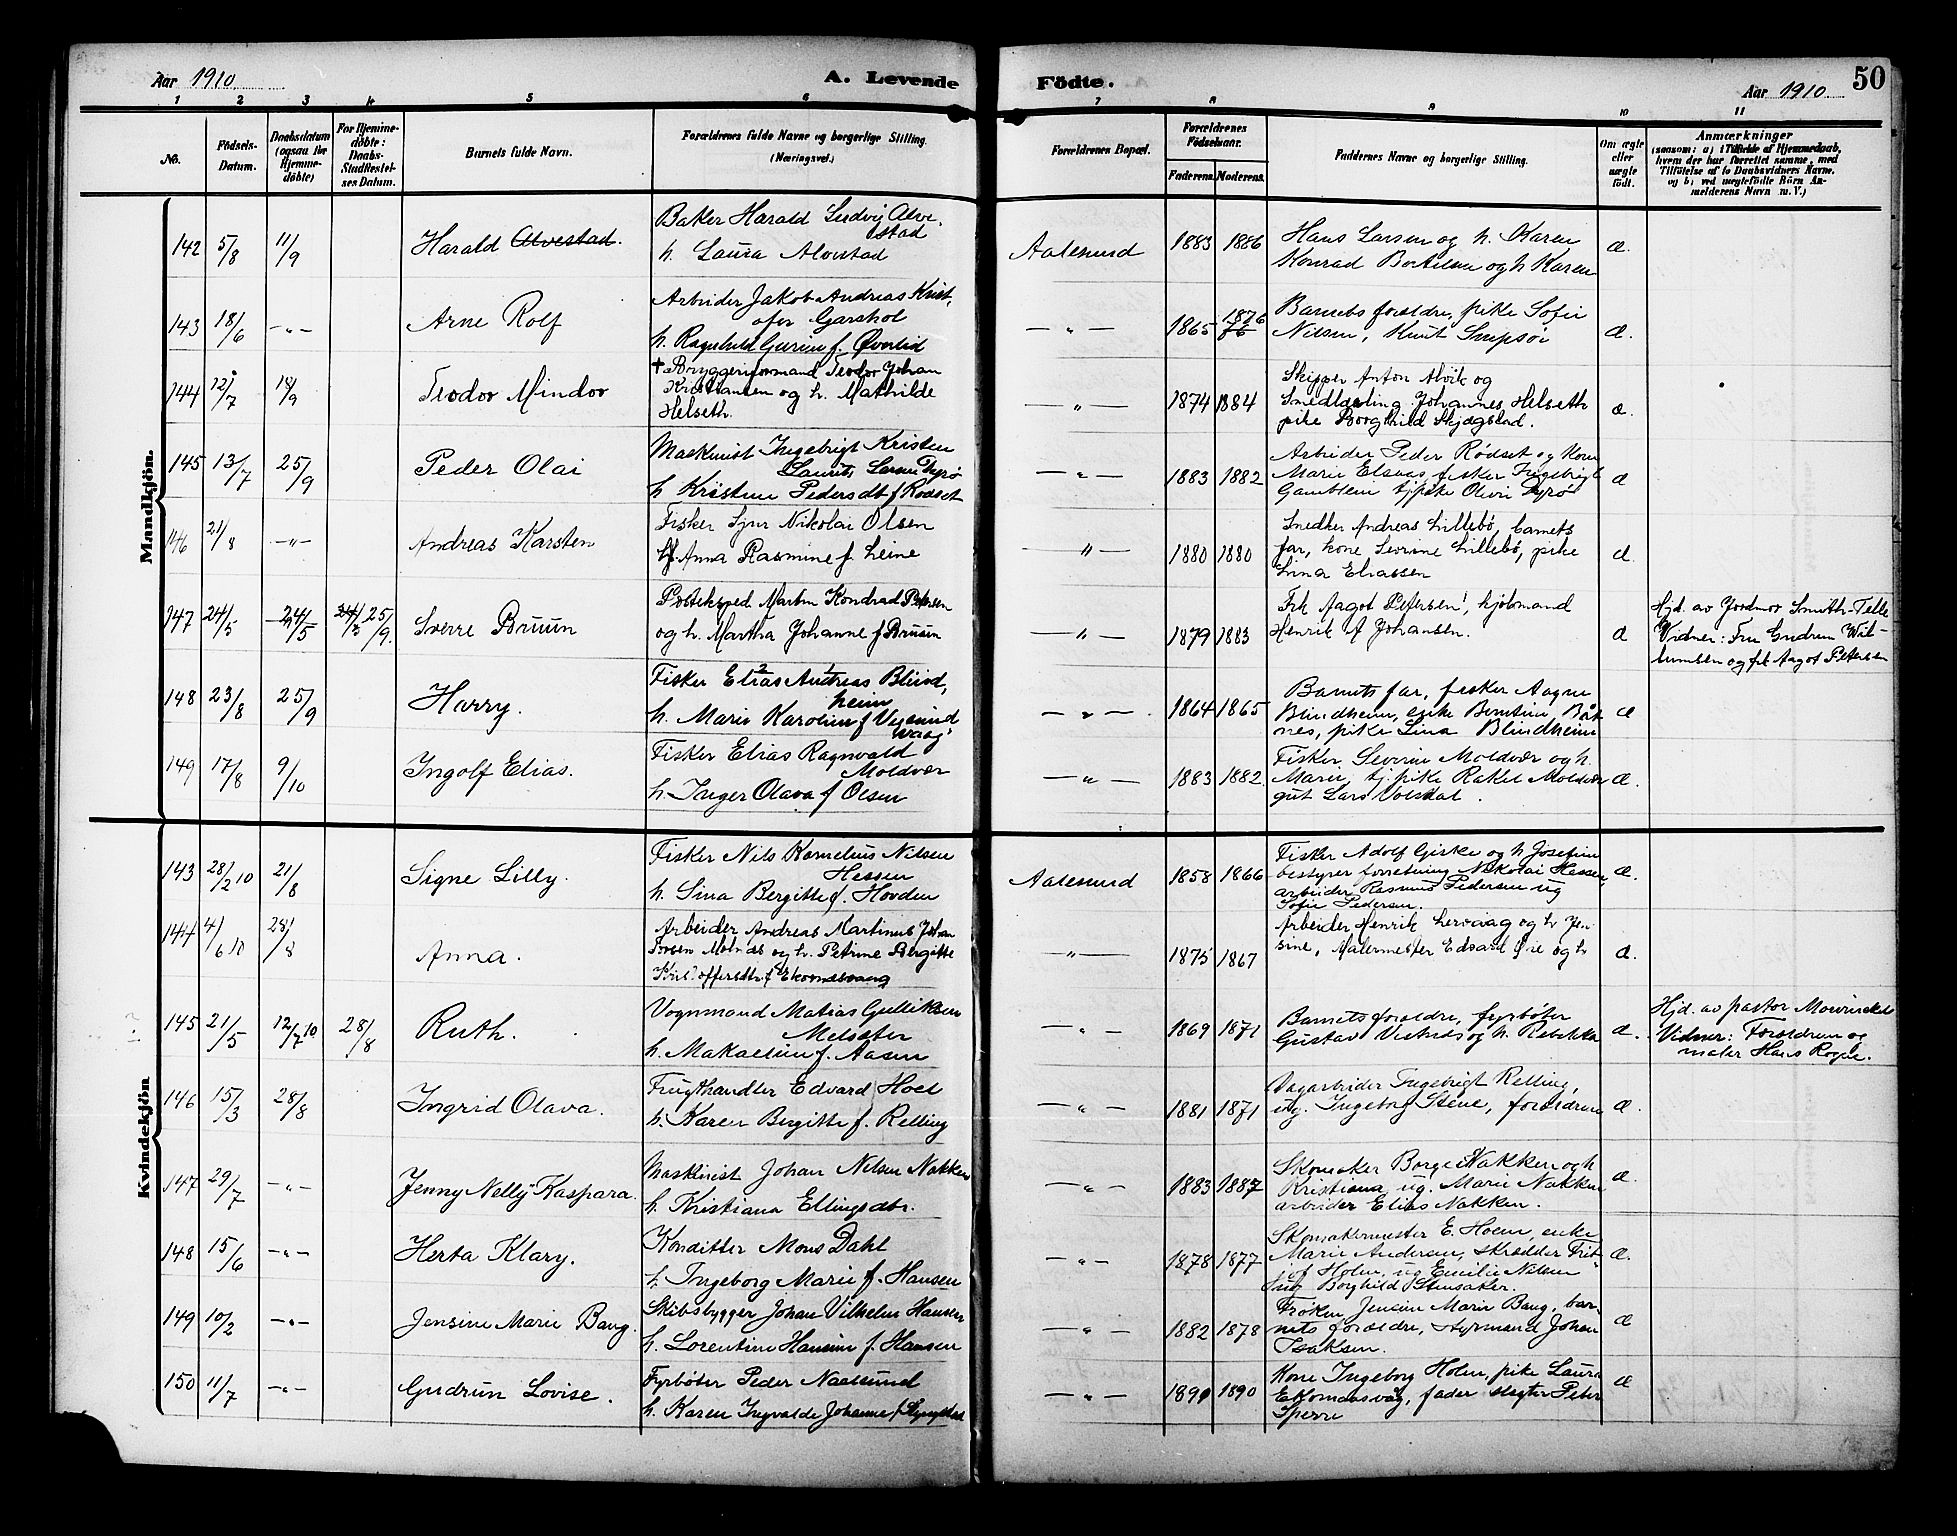 Aar 1910.
A. Levende
Födte.
Aar 1910.
50
1 2 3 4 5 6 7 8 9 10 11
No.
Födsels-
Datum.
Daabsdatum
(ogsaa for
Hjemme-
döbte)
For Hjemme-
döbte:
Daabs-
Stadfæstel-
ses Datum.
Barnets fulde Navn.
Forældrenes fulde Navne og borgerlige Stilling.
(Næringsvei.)
Forældrenes Bopæl.
Forældrenes
Födselsaar.
Faderens. Moderens.
Faddernes Navne og borgerlige Stilling.
Om ægte
eller
uægte
födt.
Anmærkninger
(saasom: a) i Tilfælde af Hjemmedaab,
hvem der har forrettet samme, med
Tilföielse af to Daabsvidners Navne,
og b) ved uægtefödte Börn An-
melderens Navn m. V.)
Mandkjön.
142 5/8 11/9 Harald Alvestad.
Baker Harald Ludvig Alve
stad
h. Laura Alvestad
Aalesund 1883 1886
Hans Larsen og h. Karen
Konrad Bertelsen og h Karen
æ.
143 18/6 -„- Arne Rolf
Arbeider Jakob Andreas Krist.
ofer Garshol
h. Ragnhild Gurine f. Øverlid
— „ — 1865 1876
76
Barnets foreldre, pike Sofie
Nilsen, Knut Snipsøi
æ.
144 12/7 18/9 Teodor Mindor
† Bryggeriformand Teodor Johan
Kristiansen og h. Mathilde
Helseth.
— „ — 1874 1884
Skipper Anton Alvik og
Smedlærling Johannes Helseth
pike Borghild Skjægstad.
æ.
145 13/7 25/9 Peder Olai
Maskinist Ingebrigt Kristen
Laurits Larsen Fyrø
h Kristine Pedersdt f Rødset
— „ — 1883 1882
Arbeider Peder Rødset og kone
Marie Elsaes, fisker Ingebrigt
Gamblem tjpike Olivi Fyrø
æ
146 21/8 -„- Andreas Karsten
Fisker Sjur Nikolai Olsen
h. Anna Rasmine f. Leine
— „ — 1880 1880
Snedker Andreas Lillebø, barnets
far, kone Severine Lillebø, pike
Lina Eliassen
æ
147 24/5 24/5 24/5 25/9. Sverre Bruun
Posteksped. Martin Kondrad Petersen
og h. Martha Johanne f Bruun
— „ — 1879 1883
Frk Aagot Petersen, kjøbmand
Henrik A Johansen.
æ
Hjd. av Jordmor Smith-Telle
Vidner: Fru Gudrun Wil-
lumsen og frk Aagot Petersen
148 23/8 25/9 Harry.
Fisker Elias Andreas Blind,
heim
h. Marie Karoline f
— „ — 1864 1865
Barnets far, fisker Aagne
Blindheim, enke Berntine
nes, pike Lina Blindheim
æ
149 17/8 9/10 Ingolf Elias.
Fisker Elias Ragnvald
Moldvær
h. Inger Olava f Olsen
— „ — 1883 1882
Fisker Severin Moldvær og h.
Marie, tj. pike Rakel Moldvær
gut Lars Volsdal.
æ.
Kvindekjön
143 28/2 10 21/8 Signe Lilly.
Fisker Nils Kornelius Nilsen
Hessen
h. Sina Bergitte f. Hovden
Aalesund 1858 1866
Fisker Adolf Giske og h Josefine
bestyrer forretning Nikolai Hessen,
arbeider Rasmus Pedersen ug
Sofie Pedersen.
æ.
144 4/6 10 28/8 Anna.
Arbeider Andreas Martinus Johan
Torsen Molnes og h. Petrine Bergitte
Kristoffersdtr f Ekornesvaag
— „ — 1875 1867
Arbeider Henrik Lervaag og h Jen-
sine, Malermester Edvard Øie og h
æ.
145 21/5 12/7 10 28/8 Ruth.
Vognmand Matias Gulliksen
Melsæter
h. Makaeline f. Aasen
— „ — 1869 1871
Barnets foreldre, fyrbøter
Gustav Vestnes og h. Rebekka
æ.
Hjd. av pastor Mowinckel
Vidner: Foreldrene og
maler Hans Rogne.
146 15/3 28/8 Ingrid Olava.
Frugthandler Edvard Hoel
h. Karen Birgitte f. Relling
— „ — 1881 1871
Veiarbeider Ingebrigt Relling,
ug. Ingeborg Stene, forældrene
æ
147 29/7 -„- Jenny Nelly Kaspara.
Maskinist Johan Nilsen Nakken
h. Kristiana Ellingsdtr.
— „ — 1883 1887
Skomaker Børge Nakken og h
Kristiana, ug. Marie Nakken
arbeider Elias Nakken.
æ
148 15/6 -„- Herta Klary.
Konditter Mons Dahl
h. Ingeborg Marie f. Hansen
- „ - 1878 1877
Skomakermester E. Hoem, enke
Marie Andersen, skrædder Frit-
jof Holm, ug Emilie Nilsen
ug Borghild Stensaker.
æ.
149 10/2 -„- Jensine Marie Bang.
Skibsbygger Johan Vilhelm Hansen
h. Lorentine Hansine f. Hansen
— „ — 1882 1878
Frøken Jensine Marie Bang, bar-
nets foreldre, styrmand Johan
Isaksen.
æ
150 11/7 -„- Gudrun Lovise.
Fyrbøter Peder Naalsund
h. Karen Ingvalde Johanne f.
— „ — 1890 1890
Kone Ingeborg Holm, pike Laura
Ekornæsvåg, fader slagter Peter
Sperre
æ